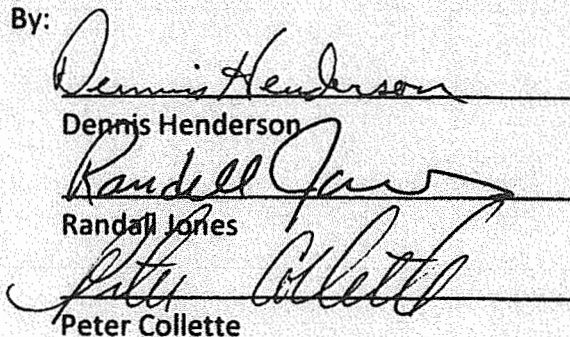 By:
Dennis Henderson
Dennis Henderson
Randall Jones
Randall Jones
Peter Collette
Peter Collette